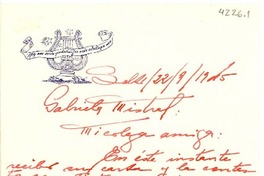 4226.1
Belle/22/9/1945
Gabriela Mistral:
Mi colega amiga:
En éste instante
recibo su carta y la contes